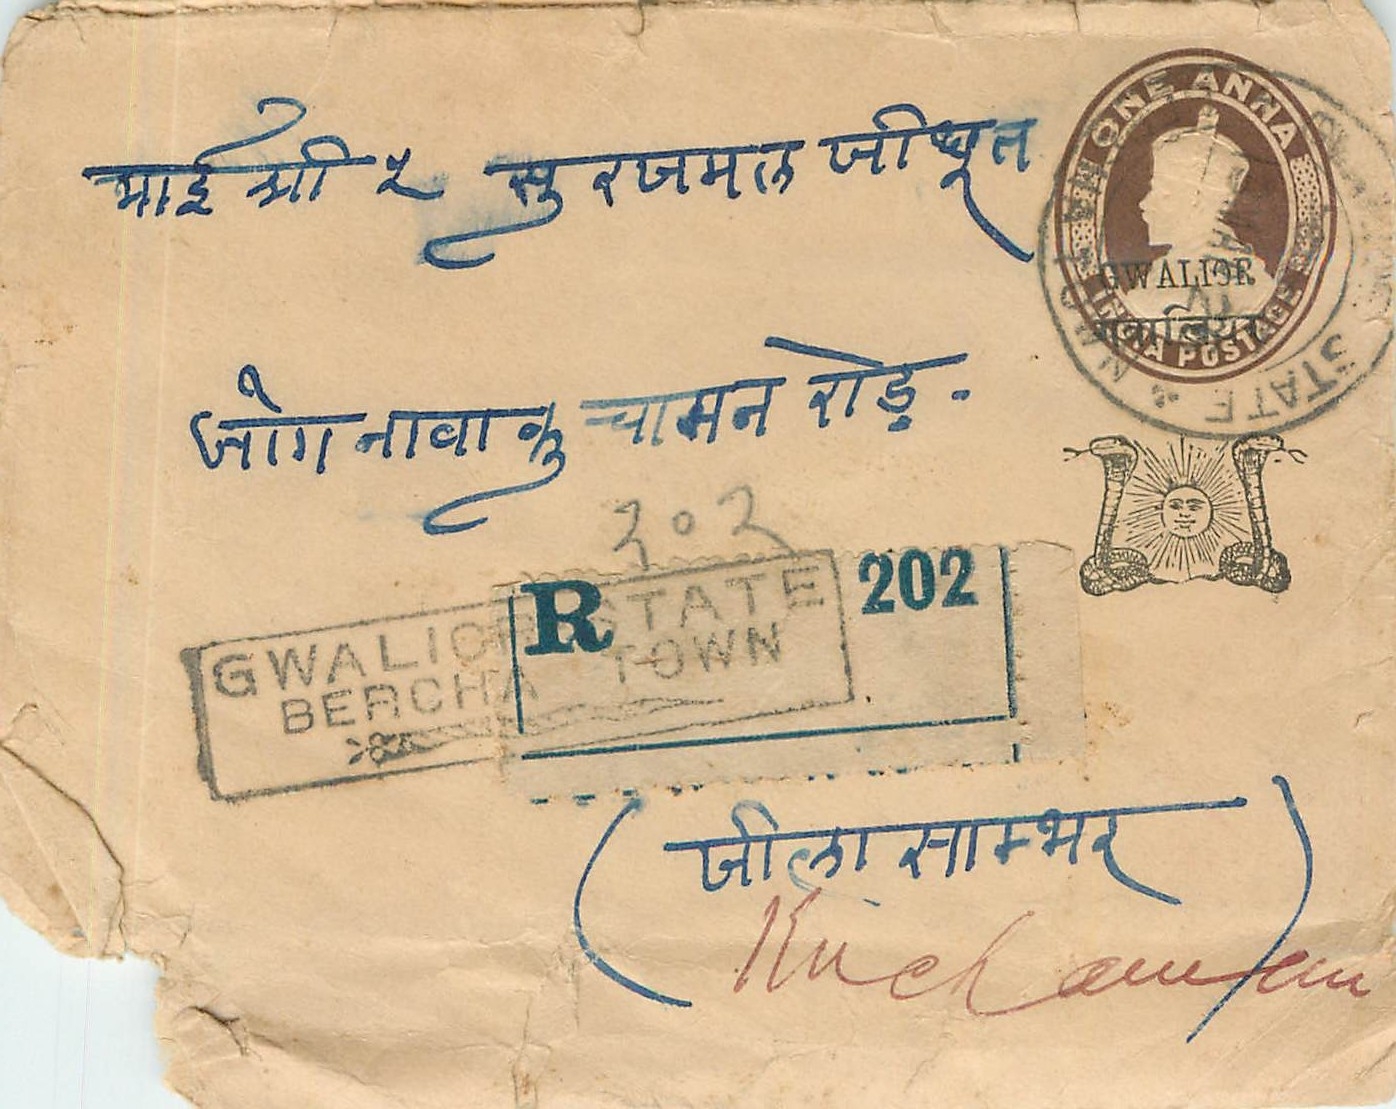 ONE ANNA
भाई श्री ५ सुरजमल जी धूत
GWALIOR
ग्वालियर
INDIA POSTAGE
STATE
जोग नावा कुचामन रोड़.
२०२
R 202
GWALIOR STATE
BERCHA TOWN
(जीला साम्भर)
Kuchaman